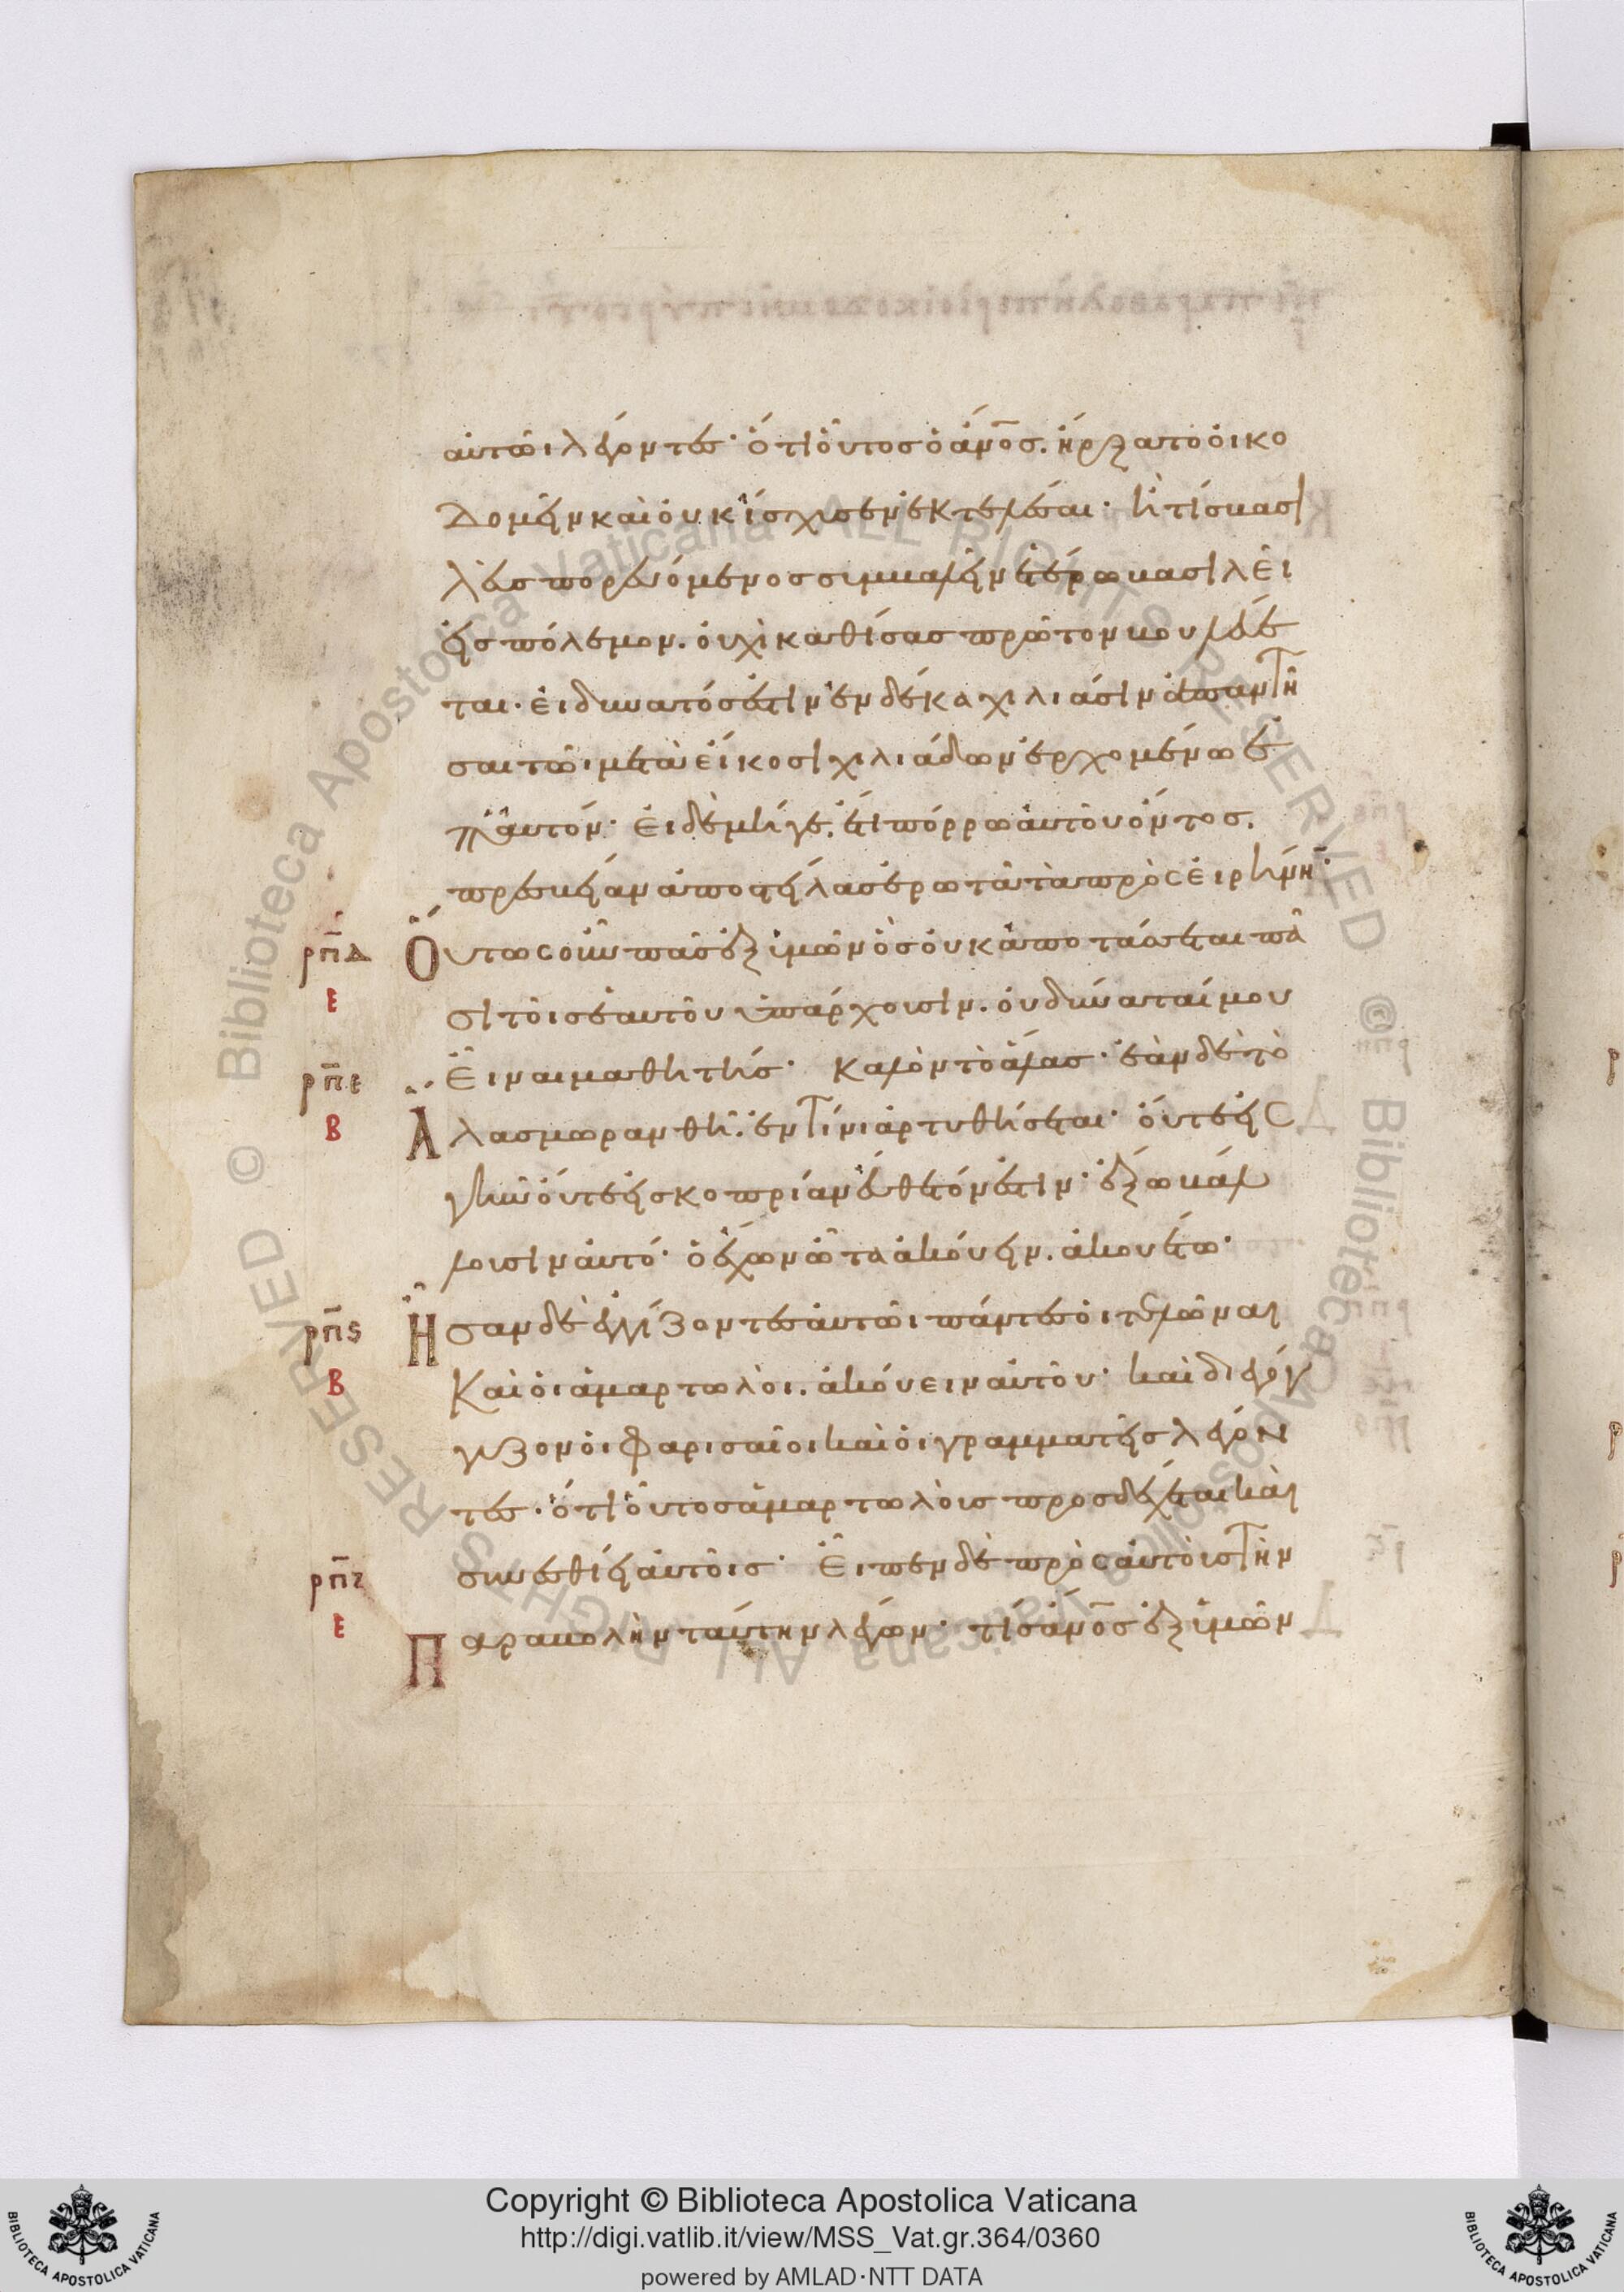 αὐτῶι λέγοντες· ὅτι οὗτος ὁ ἄνος. ἤρξατο οἰκο
δομεῖν καὶ οὐκ ἴσχυσεν ἐκτελέσαι· ἢ τίς βασι
λεὺς πορευόμενος συμβαλεῖν ἑτέρω βασιλεῖ
εἰς πόλεμον. οὐχὶ καθίσας πρῶτον βουλεύε
ται· εἰ δυνατός ἐστιν ἐν δέκα χιλιάσιν ἀπαντῆ
σαι τῶι μετὰ εἴκοσι χιλιάδων ἐρχομένω ἐ
π' αὐτόν· εἰ δὲ μήγε. ἔτι πόρρω αὐτοῦ ὄντος.
πρεσβείαν ἀποστείλας ἐρωτᾶ τὰ πρὸς εἰρήνη̄·
ρπ̄δ Οὕτως οὖν πᾶς ἐξ ὑμῶν ὃς οὐκ ἀποτάσσεται πᾶ
ε σι τοῖς ἑαυτοῦ ὑπάρχουσιν. οὐ δύναταί μου
ρπ̄ε εἶναι μαθητής· Καλὸν τὸ ἅλας· ἐὰν δὲ τὸ
Β Ἅλας μωρανθῆ. ἐν τίνι ἀρτυθήσεται· οὔτε εἰς
γῆν οὔτε εἰς κοπρίαν εὔθετόν ἐστιν· ἔξω βάλ
λουσιν αὐτό· ὁ ἔχων ὦτα ἀκούειν. ἀκουέτω·
ρπ̄ς Ἦσαν δὲ ἐγγίζοντες αὐτῶι πάντες οἱ τελῶναι
Β Καὶ οἱ ἁμαρτωλοὶ. ἀκούειν αὐτοῦ· καὶ διεγόγ
γυζον οἱ Φαρισαῖοι καὶ οἱ γραμματεῖς λέγον
τες· ὅτι οὗτος ἁμαρτωλοὺς προσδέχεται καὶ
ρπ̄ζ συνεσθίει αὐτοῖς· Εἶπεν δὲ πρὸς αὐτοὺς τὴν
ε Παραβολὴν ταύτην λέγων· τίς ἄνος ἐξ ὑμῶν
Copyright © Biblioteca Apostolica Vaticana
http://digi.vatlib.it/view/MSS_Vat.gr.364/0360
powered by AMLAD·NTT DATA
BIBLIOTECA APOSTOLICA VATICANA
BIBLIOTECA APOSTOLICA VATICANA
© Biblioteca Apostolica Vaticana ALL RIGHTS RESERVED
© Biblioteca Apostolica Vaticana ALL RIGHTS RESERVED